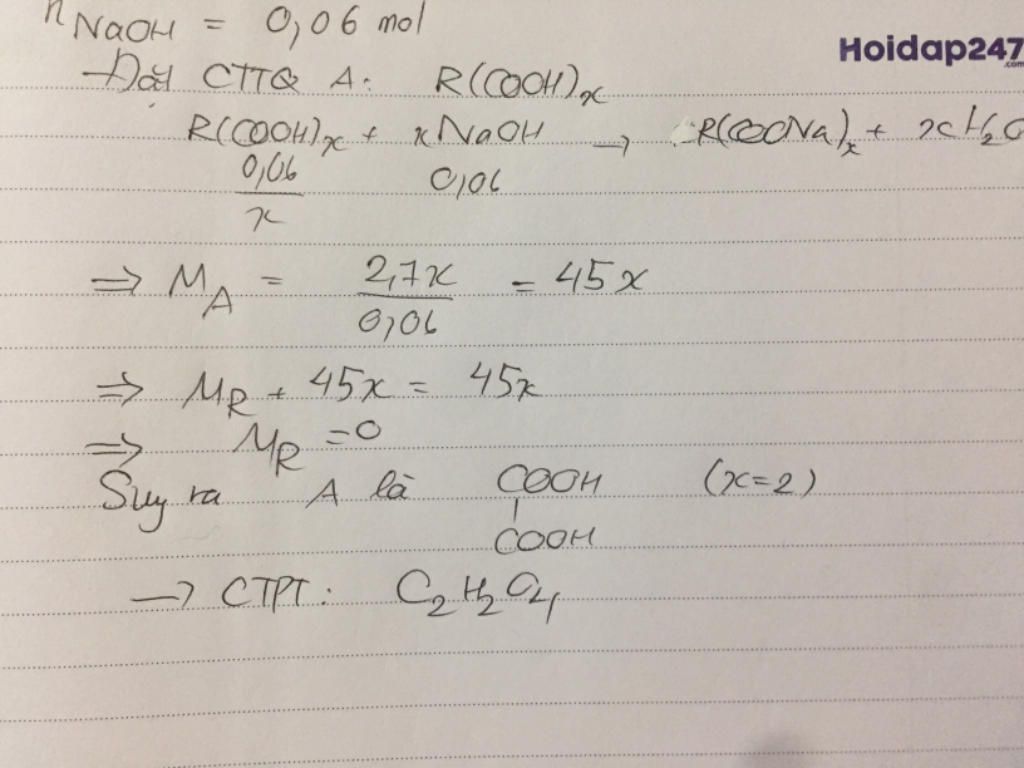 n NaOH = 0,06 mol
Hoidap247
.com
→ Đặt CTTQ A: R(COOH)ₓ
R(COOH)ₓ + xNaOH → R(COONa)ₓ + xH₂O
0,06/x 0,06
⇒ M_A = 2,7x/0,06 = 45x
⇒ M_R + 45x = 45x
⇒ M_R = 0
Suy ra A là COOH (x=2)
|
COOH
→ CTPT: C₂H₂O₄